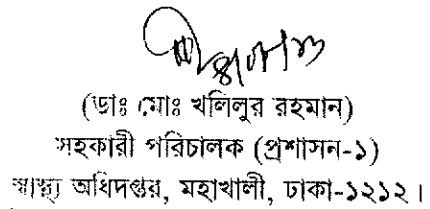 (ডাঃ মোঃ খলিলুর রহমান)
সহকারী পরিচালক (প্রশাসন-১)
স্বাস্থ্য অধিদপ্তর, মহাখালী, ঢাকা-১২১২।